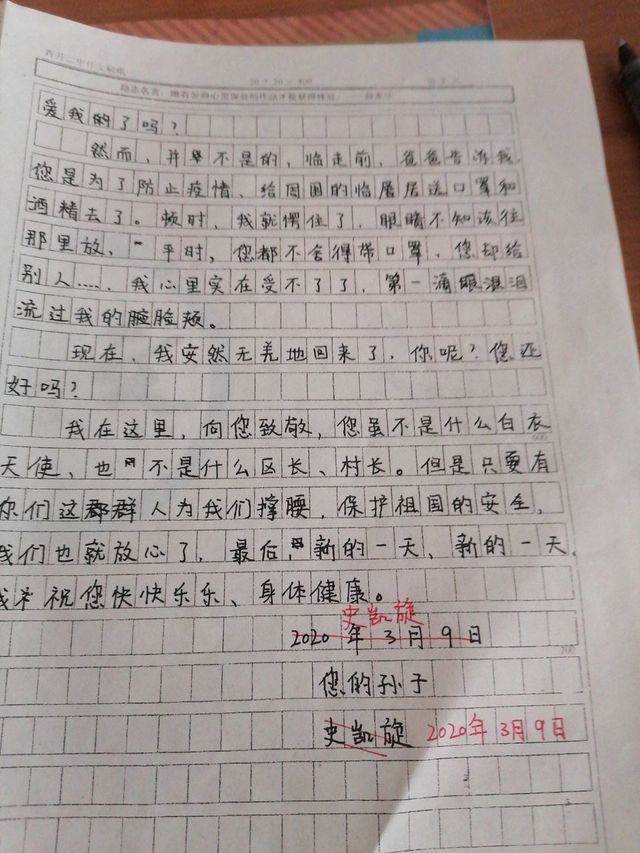 20 * 20 = 400
爱我的了吗？
然而，并举不是的，临走前，爸爸告诉我，
您是为了防止疫情、给周围的临居居送口罩和
酒精去了。顿时，我就愣住了，眼睛不知该往
那里放，平时，您都不舍得带口罩，您却给
别人……，我心里实在受不了了，第一滴眼泪泪
流过我的脸脸颊。
现在，我安然无羌地回来了，你呢？您还
好吗？
我在这里，向您致敬，您虽不是什么白衣
天使、也不是什么区长、村长。但是只要有
你们这群群人为我们撑腰，保护祖国的安全，
我们也就放心了，最后，新的一天、新的一天，
我祝您快快乐乐、身体健康。
史凯旋
2020年3月9日
您的孙子
史凯旋 2020年3月9日